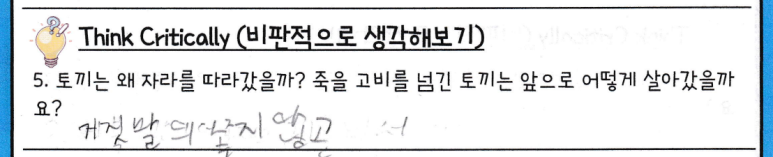 Think Critically (비판적으로 생각해보기)
5. 토끼는 왜 자라를 따라갔을까? 죽을 고비를 넘긴 토끼는 앞으로 어떻게 살아갔을까
요?
거짓말 않고